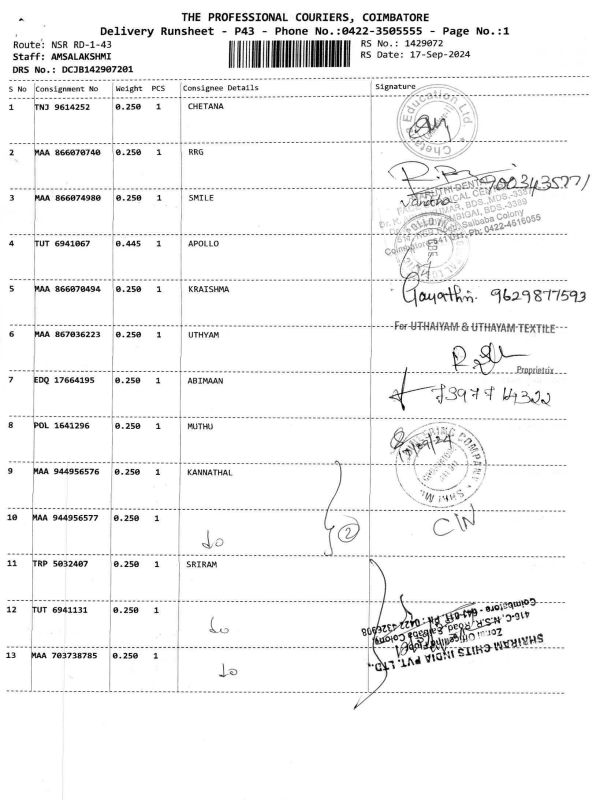 THE PROFESSIONAL COURIERS, COIMBATORE
Delivery Runsheet - P43 - Phone No.:0422-3505555 - Page No.:1
Route: NSR RD-1-43
RS No.: 1429072
Staff: AMSALAKSHMI
RS Date: 17-Sep-2024
DRS No.: DCJB142907201
S No Consignment No Weight PCS Consignee Details Signature
1 TNJ 9614252 0.250 1 CHETANA
Education Ltd
2 MAA 866070740 0.250 1 RRG
3 MAA 866074980 0.250 1 SMILE
Vanitha
Saibaba Colony
Ph: 0422-4516055
4 TUT 6941067 0.445 1 APOLLO
5 MAA 866070494 0.250 1 KRAISHMA
Gayathri 9629877593
6 MAA 867036223 0.250 1 UTHYAM
For UTHAIYAM & UTHAYAM TEXTILE
Proprietrix
7 EDQ 17664195 0.250 1 ABIMAAN
8 POL 1641296 0.250 1 MUTHU
COMPANY
9 MAA 944956576 0.250 1 KANNATHAL
2
10 MAA 944956577 0.250 1
do
CIN
11 TRP 5032407 0.250 1 SRIRAM
12 TUT 6941131 0.250 1
do
13 MAA 703738785 0.250 1
do
SHRIRAM CHITS INDIA PVT. LTD.,
416-C, N.S.R. Road, Saibaba Colony